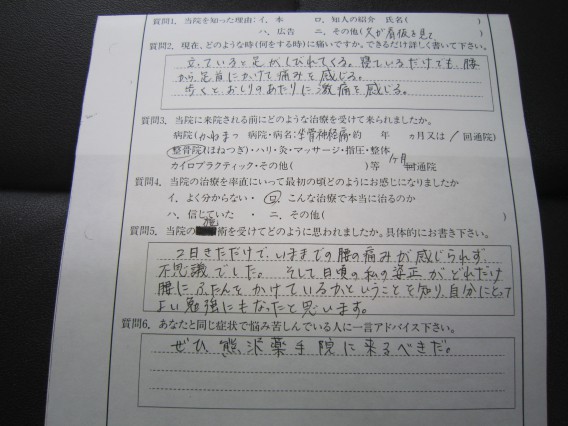 質問1. 当院を知った理由:イ、本　ロ、知人の紹介 氏名(　　)
ハ、広告　ニ、その他(父が看板を見て)
質問2. 現在、どのような時(何をする時)に痛いですか。できるだけ詳しく書いて下さい。
立っていると足がしびれてくる。寝ているだけでも、腰
から足首にかけて痛みを感じる。
歩くとおしりのあたりに激痛を感じる。
質問3. 当院に来院される前にどのような治療を受けて来られましたか。
病院(かねまつ 病院・病名:坐骨神経痛・約　年　ヵ月又は/回通院)
整骨院(ほねつぎ)・ハリ・灸・マッサージ・指圧・整体
カイロプラクティック・その他(　　)等 ヶ月 通院
質問4. 当院の治療を率直にいって最初の頃どのようにお感じになりましたか
イ、よく分からない・ロ、こんな治療で本当に治るのか
ハ、信じていた・ニ、その他(　　)
質問5. 当院の施術を受けてどのように思われましたか。具体的にお書き下さい。
2日きただけで、いままでの腰の痛みが感じられず
不思議でした。そして日頃の私の姿正がどれだけ
腰にふたんをかけているかということを知り、自分にとって
よい勉強にもなったと思います。
質問6. あなたと同じ症状で悩み苦しんでいる人に一言アドバイス下さい。
ぜひ、熊沢薬手院に来るべきだ。